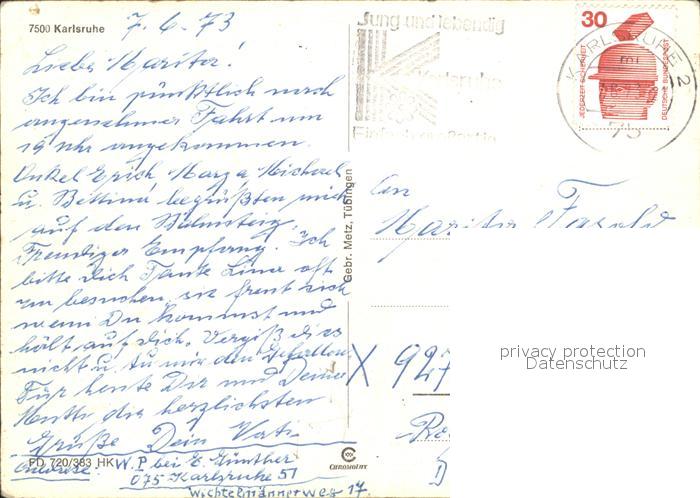 7500 Karlsruhe
7. 6. 73
Liebe Marita!
Ich bin pünktlich nach
angenehmer Fahrt um
19 Uhr angekommen.
Onkel Erich Marga Michael
u. Bettina begrüßten mich
auf den Bahnsteig.
Freudiger Empfang. Ich
bitte Dich Tante Lina oft
zu besuchen, sie freut sich
wenn Du kommst und
hält auf Dich. Vergiß dies
nicht u. tu mir den Gefallen.
Für heute Dir und Deiner
Mutti die herzlichsten
Grüße Dein Vati
PD 720/383 HK W. P bei E. Günther
Adresse:
075 Karlsruhe 51
Wichtelmännerweg 17.
Gebr. Metz, Tübingen
CHROMOLUX
Jung und lebendig
Karlsruhe
30
JEDERZEIT SICHERHEIT
DEUTSCHE BUNDESPOST
KARLSRUHE 2
75
An
Marita
X 927
privacy protection
Datenschutz